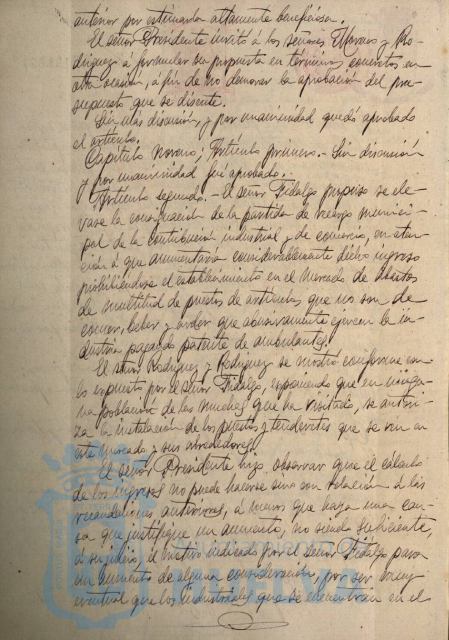 anterior por estimarla altamente beneficiosa.
El señor Presidente invitó á los señores Moreno y Ro-
driguez á formular su propuesta en términos concretos en
otra ocasión, á fin de no demorar la aprobación del pre-
supuesto que se discute.
Sin más discusión y por unanimidad quedó aprobado
el artículo.
Capítulo noveno; Artículo primero.- Sin discusión
y por unanimidad fué aprobado.-
Artículo segundo.- El señor Fidalgo propuso se ele-
vase la consignación de la partida de recargo munici-
pal de la contribución industrial y de comercio, en aten-
ción á que aumentaria considerablemente dicho ingreso
prohibiéndose el establecimiento en el Mercado de Abastos
de multitud de puestos de artículos que no son de
comer, beber y arder que abusivamente ejercen la in-
dustria pagando patente de ambulantes.
El señor Rodriguez y Rodriguez se mostró conforme con
lo expuesto por el señor Fidalgo, exponiendo que en ningu-
na población de las muchas que ha visitado, se autori-
za la instalación de los puestos y tenderetes que se ven en
este mercado y sus alrededores.
El señor Presidente hizo observar que el cálculo
de los ingresos no puede hacerse sino con relación á las
recaudaciones anteriores, á menos que haya una cau-
sa que justifique un aumento, no siendo suficiente,
á su juicio, el motivo indicado por el señor Fidalgo para
un aumento de alguna consideración, por ser muy
eventual que los industriales que se encuentran en el